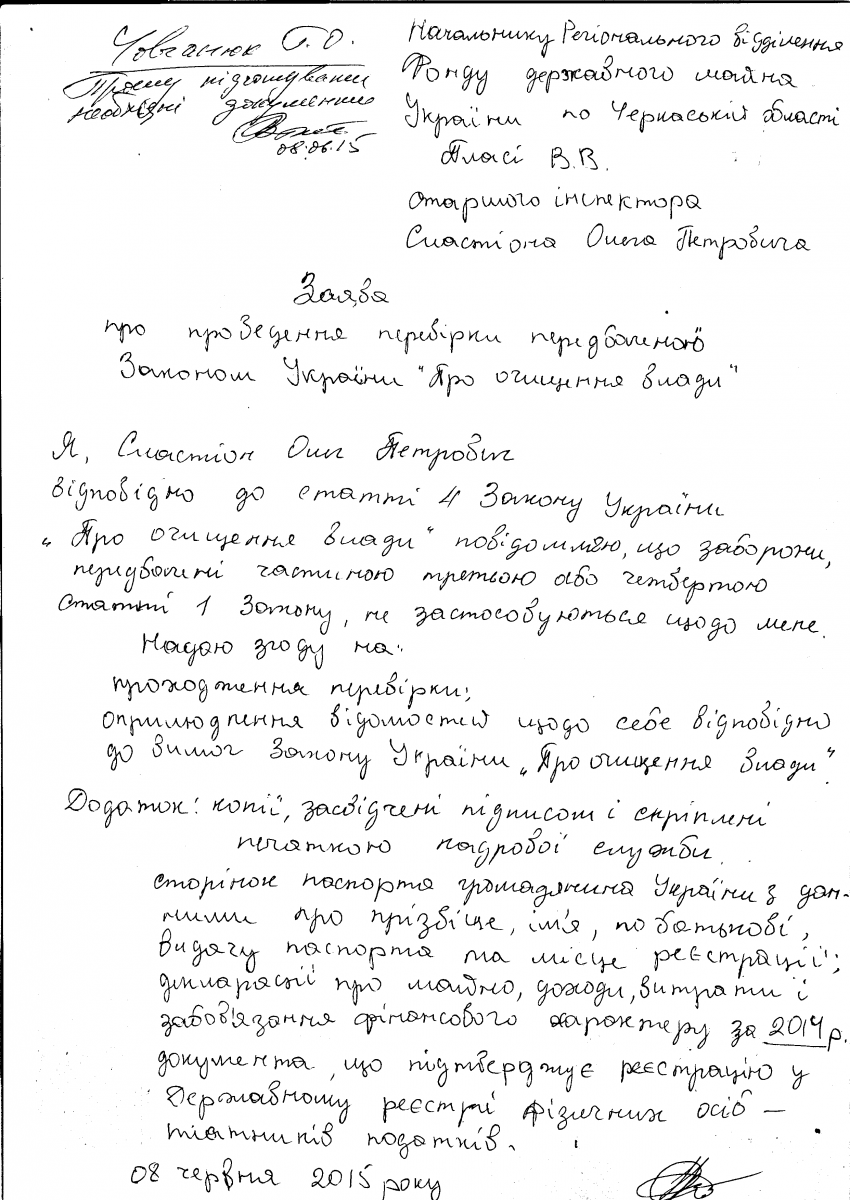 Човганюк Г.О.
Прошу підготувати
необхідні документи
08.06.15
Начальнику Регіонального відділення
Фонду державного майна
України по Черкаській області
Пласі В.В.
старшого інспектора
Сластіона Олега Петровича
Заява
про проведення перевірки передбаченої
Законом України "Про очищення влади"
Я, Сластіон Олег Петрович
відповідно до статті 4 Закону України
„Про очищення влади" повідомляю, що заборони,
передбачені частиною третьою або четвертою
статті 1 Закону, не застосовуються щодо мене.
Надаю згоду на:
проходження перевірки;
оприлюднення відомостей щодо себе відповідно
до вимог Закону України „Про очищення влади"
Додаток: копії, засвідчені підписом і скріплені
печаткою кадрової служби
сторінок паспорта громадянина України з дан-
ними про прізвіще, ім'я, по батькові,
видачу паспорта та місце реєстрації;
декларації про майно, доходи, витрати і
забов'язання фінансового характеру за 2014 р.
документа, що підтверджує реєстрацію у
Державному реєстрі фізичних осіб –
платників податків.
08 червня 2015 року